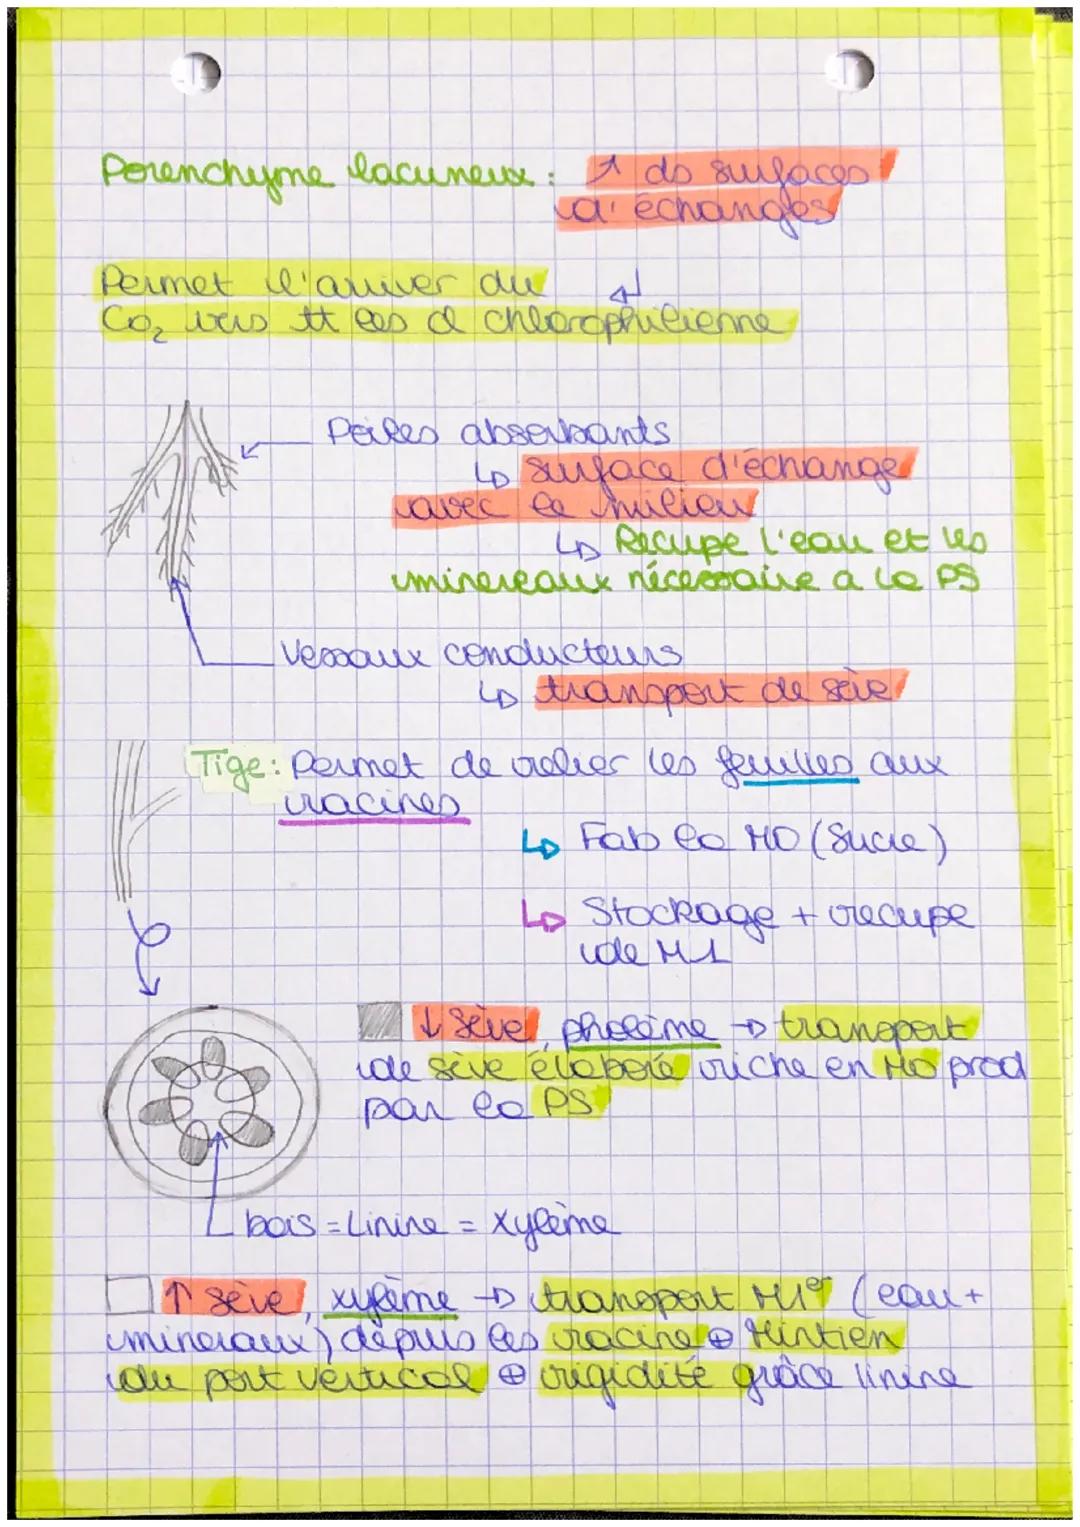 Porenchyme lacuneux : ↑ ds surfaces
d'échanges
Permet l'arriver du
CO₂ vers tt les ₵ chlorophilienne
Poiles absorbants
↳ surface d'échange
avec le milieu
↳ Recupe l'eau et les
minereaux nécessaire a la PS
Vessaux conducteurs
↳ transport de sève
Tige : Permet de relier les feuilles aux
racines
↳ Fab la MO (Sucre)
↳ Stockage + recupe
de MI
↓ Sève, phloème → transport
de sève élaboré riche en MO prod
par la PS
bois = Linine = xylème
↑ sève, xylème → transport MI (eau +
mineraux) depuis les racine ⊕ Mintien
du port vertical ⊕ rigidité grâce linine